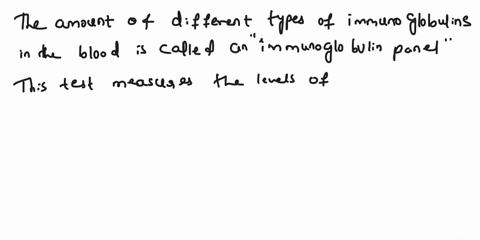 The amount of different types of immunoglobulins
in the blood is called an "immunoglobulin panel"
This test measures the levels of